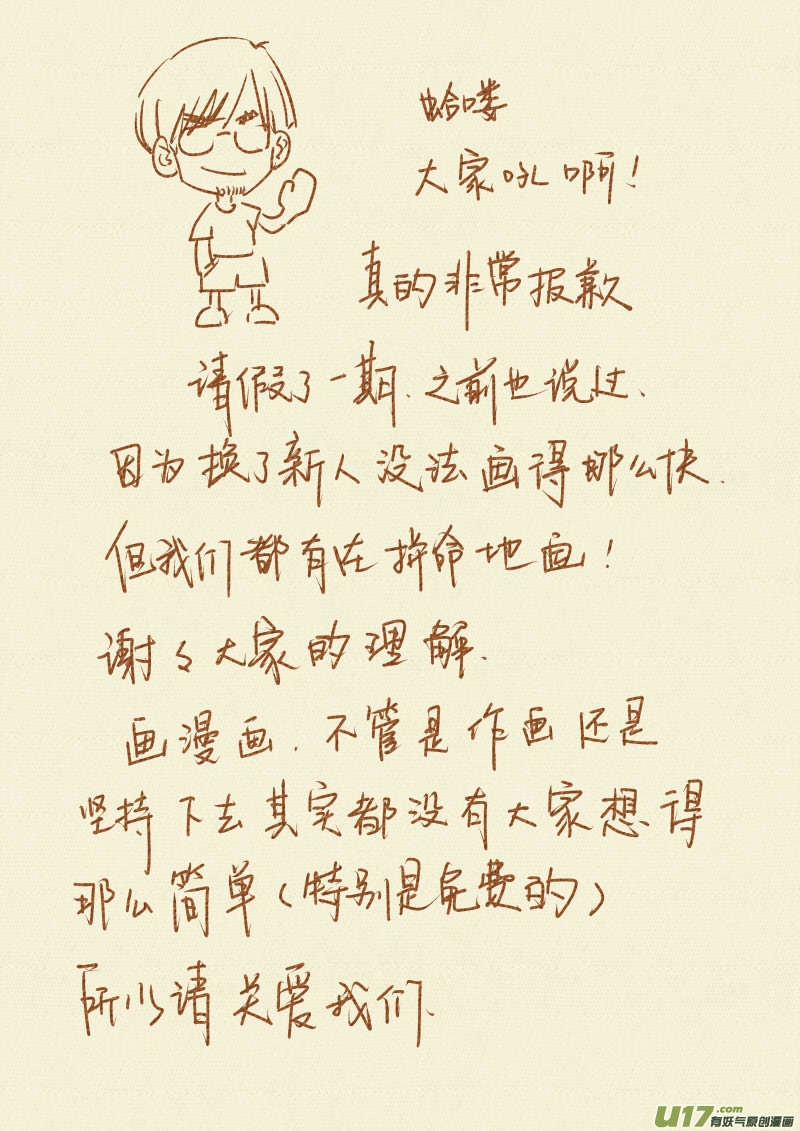 蛤喽
大家吼啊！
真的非常报歉
请假了一期．之前也说过、
因为换了新人没法画得那么快．
但我们都有在拼命地画！
谢々大家的理解．
画漫画．不管是作画还是
坚持下去其实都没有大家想得
那么简单（特别是免费的）
所以请关爱我们．
U17.com
有妖气原创漫画